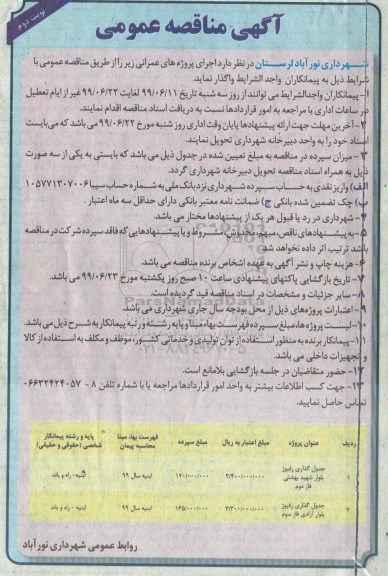 نوبت دوم
آگهی مناقصه عمومی
شهرداری نورآباد لرستان در نظر دارد اجرای پروژه های عمرانی زیر را از طریق مناقصه عمومی با
شرایط ذیل به پیمانکاران واجد الشرایط واگذار نماید.
۱- پیمانکاران واجدالشرایط می توانند از روز سه شنبه تاریخ ۹۹/۰۶/۱۱ لغایت ۹۹/۰۶/۲۲ غیر از ایام تعطیل
در ساعات اداری با مراجعه به امور قراردادها نسبت به دریافت اسناد مناقصه اقدام نمایند.
۲- آخرین مهلت جهت ارائه پیشنهادها پایان وقت اداری روز شنبه مورخ ۹۹/۰۶/۲۲ می باشد که می بایست
اسناد خود را به واحد دبیرخانه شهرداری تحویل نمایند.
۳- میزان سپرده در مناقصه به مبلغ تعیین شده در جدول ذیل می باشد که بایستی به یکی از سه صورت
ذیل به همراه اسناد مناقصه تحویل دبیرخانه شهرداری گردد.
الف) واریز نقدی به حساب سپرده شهرداری نزد بانک ملی به شماره حساب سیبا ۰۱۰۵۷۷۱۳۰۷۰۰۶
ب) چک تضمین شده بانکی ج) ضمانت نامه معتبر بانکی دارای حداقل سه ماه اعتبار.
۴- شهرداری در رد یا قبول هر یک از پیشنهادها مختار می باشد.
۵- به پیشنهادهای ناقص، مبهم، مخدوش، مشروط و یا پیشنهادهایی که فاقد سپرده شرکت در مناقصه
باشد ترتیب اثر داده نخواهد شد.
۶- هزینه چاپ و نشر آگهی به عهده اشخاص برنده مناقصه می باشد.
۷- تاریخ بازگشایی پاکتهای پیشنهادی ساعت ۱۰ صبح روز یکشنبه مورخ ۹۹/۰۶/۲۳ می باشد.
۸- سایر جزئیات و مشخصات در اسناد مناقصه قید گردیده است.
۹- اعتبارات پروژه های ذیل از محل بودجه سال جاری شهرداری می باشد.
۱۰- لیست پروژه ها، مبلغ سپرده فهرست بهاء مبنا و پایه رشته و رتبه پیمانکار به شرح ذیل می باشد.
۱۱- پیمانکار برنده به منظور استفاده از توان تولیدی و خدماتی کشور، موظف و مکلف به استفاده از کالا
و تجهیزات داخلی می باشد.
۱۲- حضور متقاضیان در جلسه بازگشایی بلامانع است.
۱۳- جهت کسب اطلاعات بیشتر به واحد امور قراردادها مراجعه یا با شماره تلفن ۸ - ۰۶۶۳۲۴۲۴۰۵۷
تماس حاصل نمایید.
ردیف عنوان پروژه مبلغ اعتبار به ریال مبلغ سپرده فهرست بهاء مبنا محاسبه پیمان پایه و رشته پیمانکار شخصی (حقوقی و حقیقی)
۱ جدول گذاری رفیوژ بلوار شهید بهشتی فاز دوم ۳/۴۰۰/۰۰۰/۰۰۰ ۱۷۰/۰۰۰/۰۰۰ ابنیه سال ۹۹ ابنیه- راه و باند
۲ جدول گذاری رفیوژ بلوار آزادی فاز سوم ۳/۳۰۰/۰۰۰/۰۰۰ ۱۶۵/۰۰۰/۰۰۰ ابنیه سال ۹۹ ابنیه - راه و باند
روابط عمومی شهرداری نورآباد
ParsNamadData